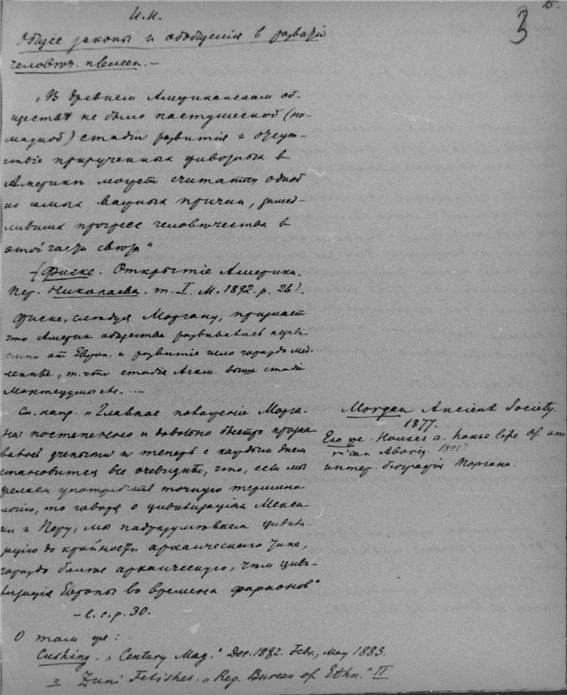 15.
3
И.И.
Общіе законы и обобщенія в развитіи
человѣч. племен. —
„В древнем Американском об-
ществѣ не было пастушеской (но-
мадной) стадіи развитія и отсут-
ствіе прирученных животных в
Америкѣ может считаться одной
из самых важных причин, замед-
лившим прогресс человѣчества в
этой части свѣта“
(Фиске. Открытіе Америки.
Пер. Николаева. т. I. М. 1892. р. 26).
Фиске, слѣдуя Моргану, признает
что Америк. общества развивались
от Европ. и развитіе шло гораздо мед-
леннѣе, т. что стадія Агам. выше стадіи
Монтецумы
См. напр. „Главное положеніе Морга-
на постепенно и довольно быстро призна-
ваемое учеными и теперь с каждым днем
становится все очевиднѣе, что, если мы
желаем употреблять точную термино-
логію, то говоря о цивилизаціях Мекси-
ки и Перу, мы подразумѣваем цивили-
зацію до крайности архаическаго типа,
гораздо болѣе архаическую, чѣм циви-
лизація Египта во времена фараонов“
— l. c. p. 30.
Morgan Ancient Society.
1877.
Его же. Houses a. house life of am-
rican Aborig.
интер. біографія Моргана.
О том же:
Cushing. „Century Mag.“ Dec. 1882. Febr., May 1883.
„ Zuni Fetishes. „Rep. Bureau of Ethn.“ II